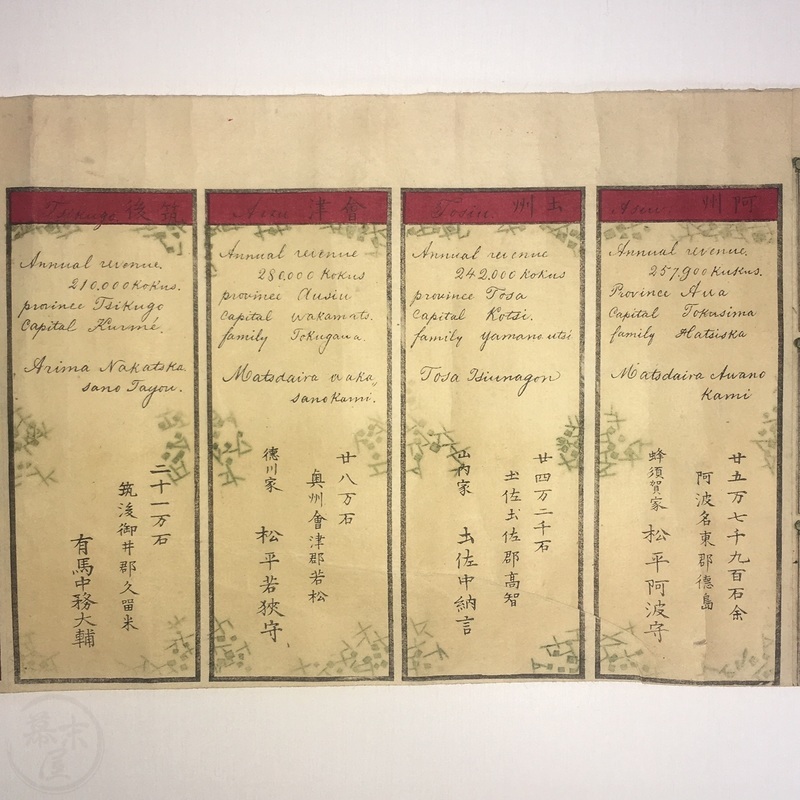 Tsikugo. 筑後
Annual revenue.
210.000 kokus.
province Tsikugo
Capital Kurmé.
Arima Nakatska
sano Tayou.
二十一万石
筑後御井郡久留米
有馬中務大輔
會津
Annual revenue
280.000 kokus
province Ausiu
Capital Wakamats.
family Tokugawa.
Matsdaira waka
sanokami.
廿八万石
奥州會津郡若松
德川家 松平若狹守
Tosiu. 土州
Annual revenue
242.000 kokus
province Tosa
Capital Kotsi.
family yamano utsi
Tosa Tsiunagon
廿四万二千石
土佐土佐郡高智
山内家 土佐中納言
Asiu. 阿州
Annual revenue.
257,900 kukus.
Province Aua
Capital Tokusima
family Hatsiska
Matsdaira Awano
kami
廿五万七千九百石余
阿波名東郡德島
蜂須賀家 松平阿波守
幕末屋